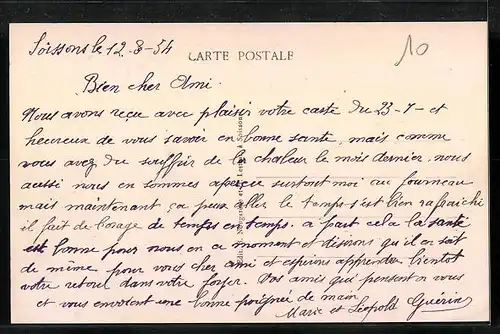 Soissons le 12-8-54
10
CARTE POSTALE
Bien cher Ami
Nous avons reçu avec plaisir votre carte du 23-7- et
heureux de vous savoir en bonne santé, mais comme
vous avez du souffrir de la chaleur le mois dernier, nous
aussi nous en sommes aperçu surtout moi au fourneau
mais maintenant ça peux aller le temps s'est bien rafraichi
il fait de l'orage de temps en temps. a part cela la santé
est bonne pour nous en ce moment et désirons qu'il en soit
de même pour vous cher ami et espérons apprendre bientot
votre retour dans votre foyer. Vos amis qui pensent a vous
et vous envoient une bonne poignée de main
Marie et Léopold Guérin